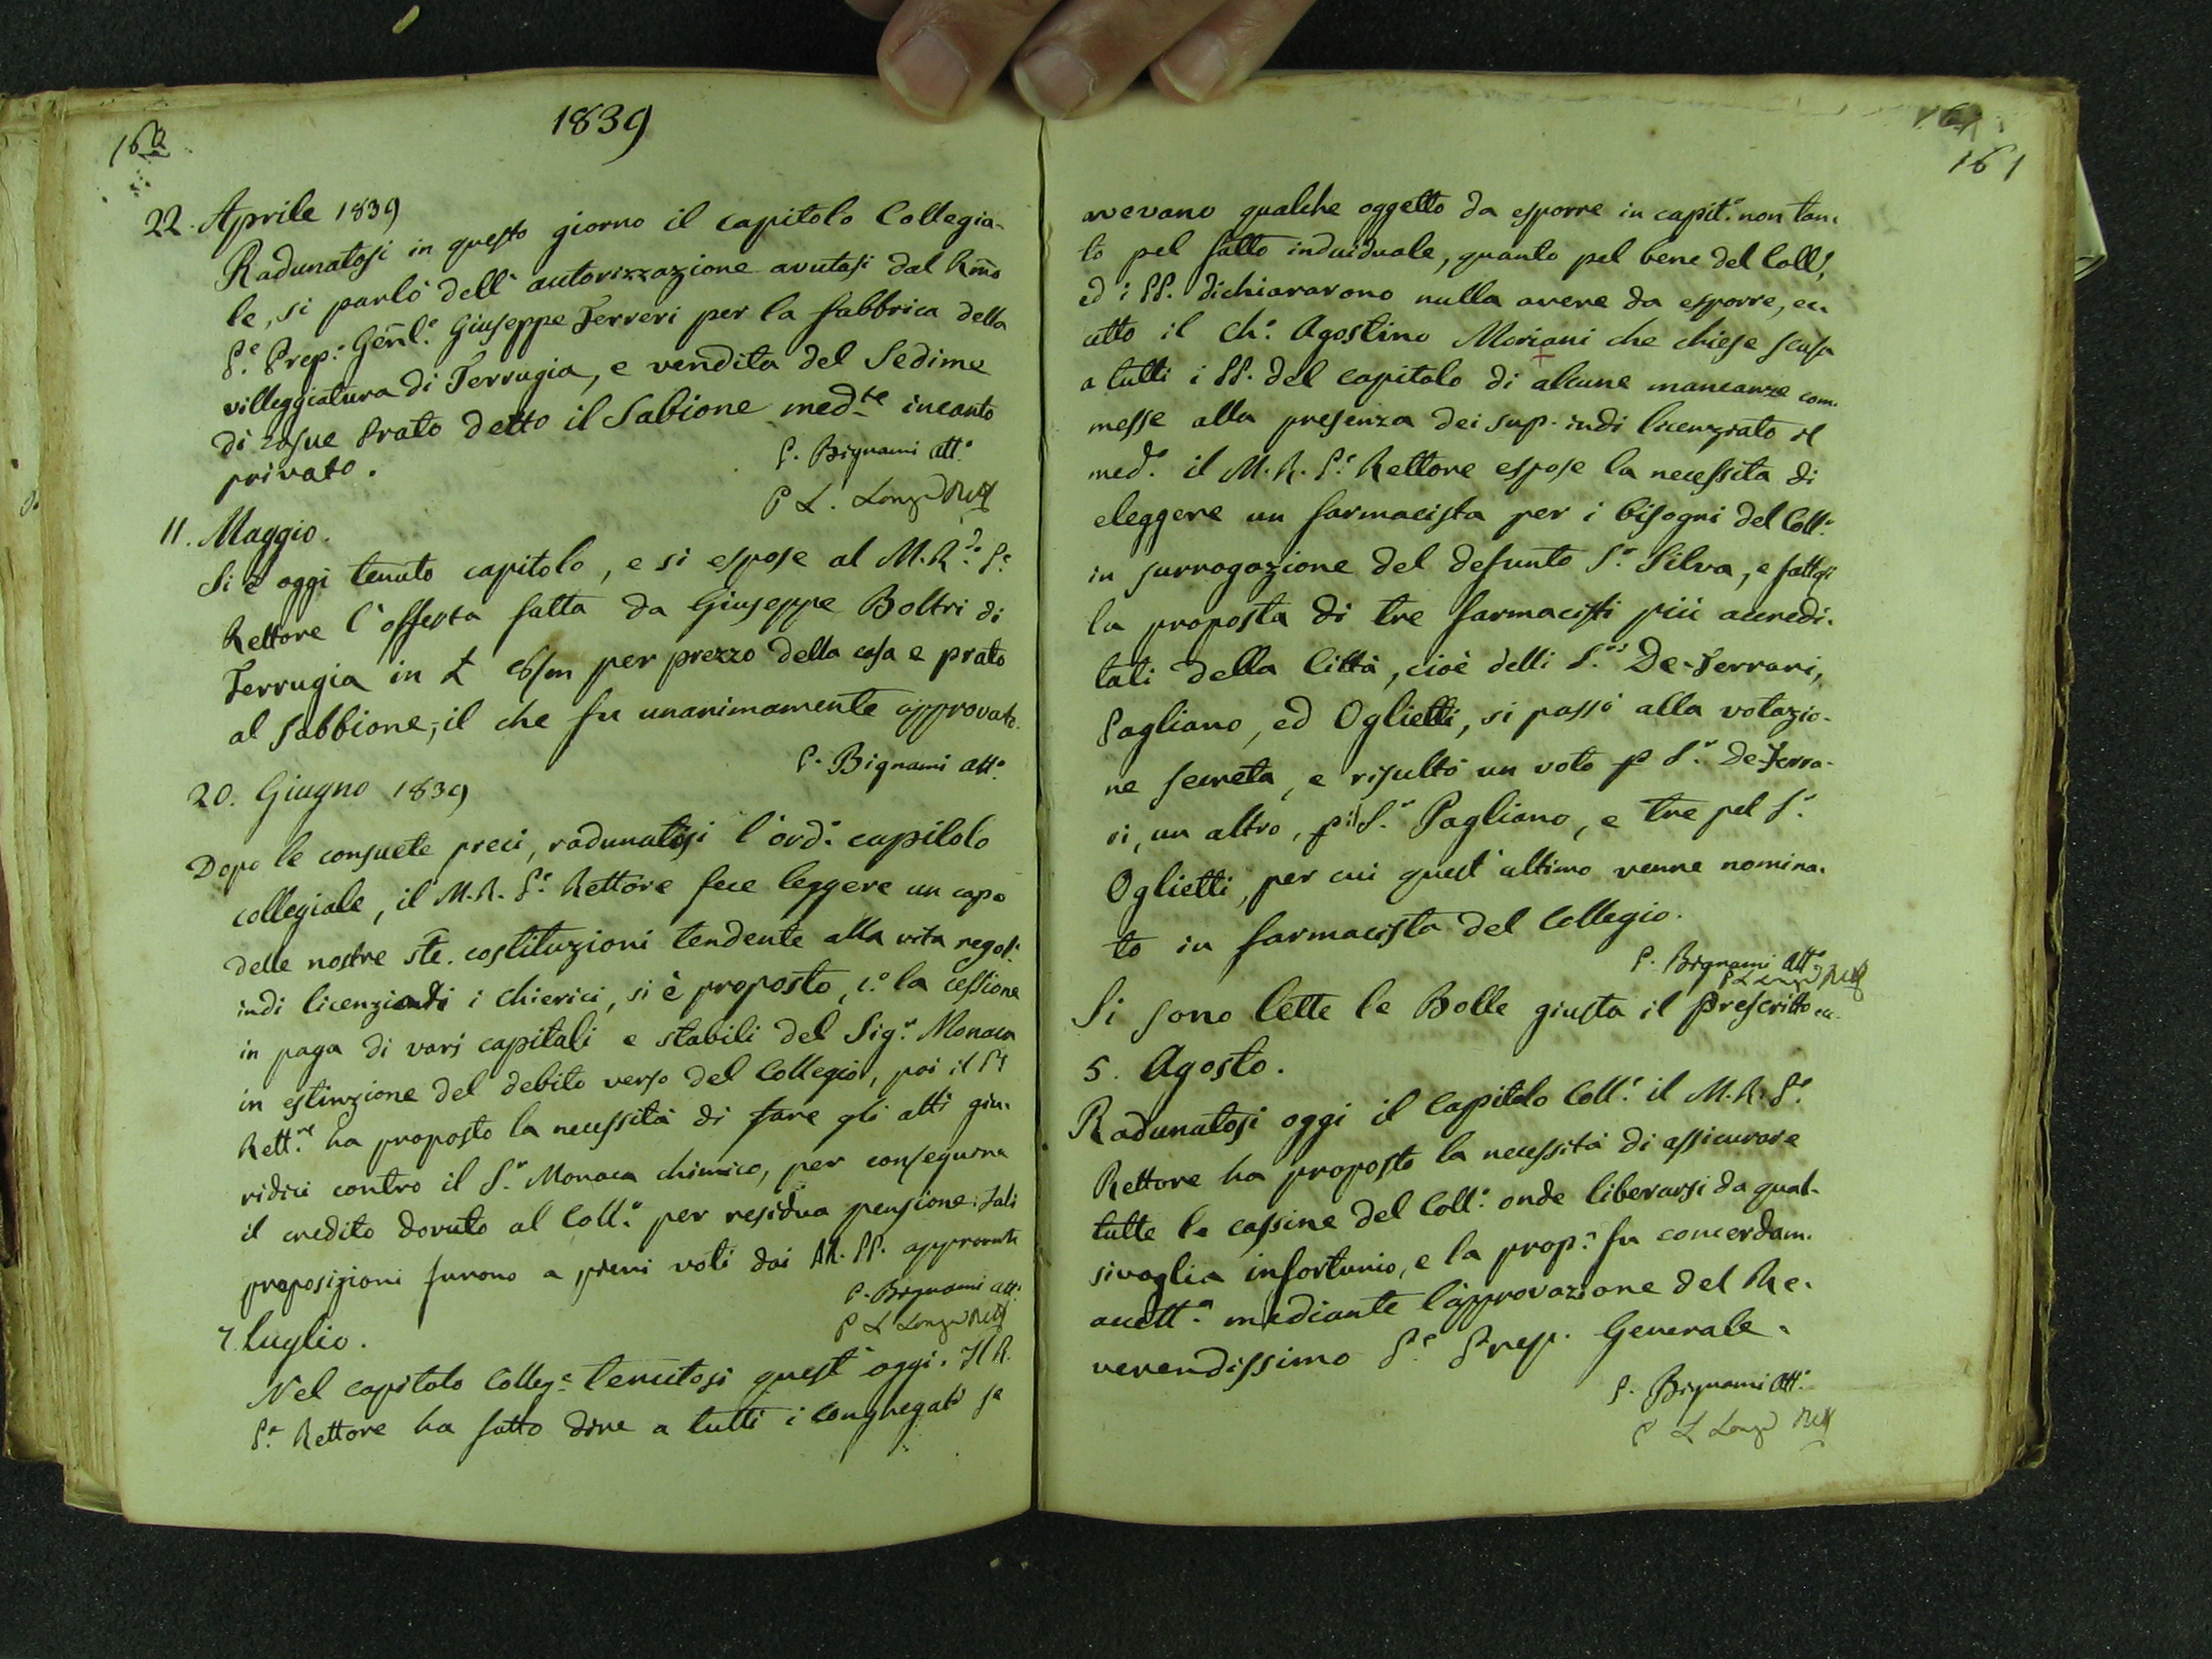 160
1839
22. Aprile 1839
Radunatosi in questo giorno il capitolo Collegia-
le, si parlò dell'autorizzazione avutasi dal Rm̃o
P.e Prep.o Gen̄l.e Giuseppe Ferreri per la fabbrica della
villeggiatura di Terrugia, e vendita del Sedime
di Prato detto il Sabione med.te incanto
privato.
P. Bignami att.o
P L. Longo Rett
11. Maggio.
Si è oggi tenuto capitolo, e si espose al M.R.do P.e
Rettore l'offerta fatta da Giuseppe Boltri di
Terrugia in £ 6/m per prezzo della casa e prato
al Sabbione, il che fu unanimamente approvato.
P. Bignami att.o
20. Giugno 1839
Dopo le consuete preci, radunatosi l'ord.o capitolo
collegiale, il M.R. P.e Rettore fece leggere un capo
delle nostre ste. costituzioni tendente alla vita regol.e
indi licenziandi i chierici, si è proposto, 1.o la cessione
in paga di varj capitali e stabili del Sig.r Monaca
in estinzione del debito verso del Collegio, poi il P.e
Rett.re ha proposto la necessità di fare gli atti giu-
ridici contro il S.r Monaca chimico, per conseguirne
il credito dovuto al Coll.o per residua pensione: tali
proposizioni furono a pieni voti dai RR. PP. approvate
P. Bignami att.o
P L Longo Rett
7 Luglio.
Nel capitolo Colleg.e tenutosi quest'oggi. Il R.
P.e Rettore ha fatto dire a tutti i congregati se
161
avevano qualche oggetto da esporre in capit.o non tan-
to pel fatto induiduale, quanto pel bene del Coll.o,
ed i PP. dichiararono nulla avere da esporre, ec-
cetto il Ch.o Agostino Moriani che chiese scusa
a tutti i PP. del capitolo di alcune mancanze com-
messe alla presenza dei sup. indi licenziato il
med.o il M.R. P.e Rettore espose la necessita di
eleggere un farmacista per i bisogni del Coll.o
in surrogazione del defunto S.r Silva, e fattasi
la proposta di tre farmacisti più accredi-
tati della Città, cioè delli S.ri De-Ferrari,
Pagliano, ed Oglietti, si passò alla votazio-
ne secreta, e risultò un voto p S.r De-Ferra-
ri, un altro, p il S.r Pagliano, e tre pel S.r
Oglietti, per cui quest'ultimo venne nomina-
to in farmacista del Collegio.
P. Bignami att.o
P L Longo Rett
Si sono lette le Bolle giusta il prescritto ec.
5. Agosto.
Radunatosi oggi il Capitolo Coll.e il M.R. P.e
Rettore ha proposto la necessità di assicurare
tutte le cassine del Coll.o onde liberarsi da qual-
sivoglia infortunio, e la prop.e fu concordam.
accett.a mediante l'approvazione del Re-
verendissimo P.e Prep. Generale.
P. Bignami att.o
P L Longo Rett